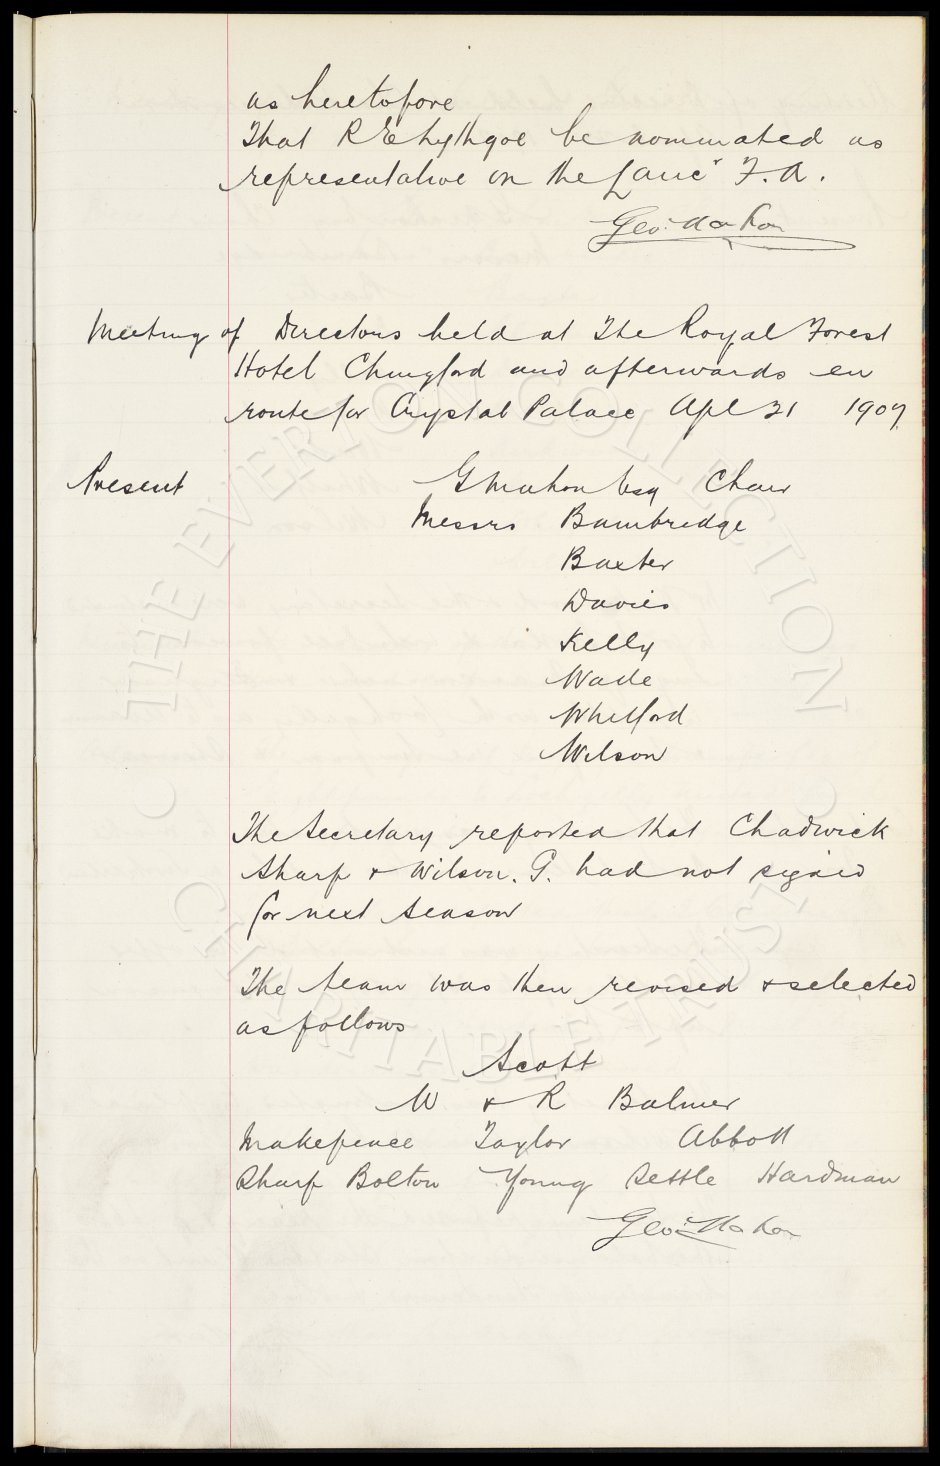 as heretofore
That R E Lythgoe be nominated as
representative on the Lanc" F.A.
Geo: Mahon
Meeting of Directors held at The Royal Forest
Hotel Chingford and afterwards en
route for Crystal Palace Apl 21 1907
Present G Mahon Esq Chair
Messrs Bambridge
Baxter
Davies
Kelly
Wade
Whitford
Wilson
The Secretary reported that Chadwick
Sharp & Wilson. G. had not signed
for next season
The team was then revised & selected
as follows
Scott
W & R Balmer
Makepeace Taylor Abbott
Sharp Bolton Young Settle Hardman
Geo: Mahon
© THE EVERTON COLLECTION
CHARITABLE TRUST